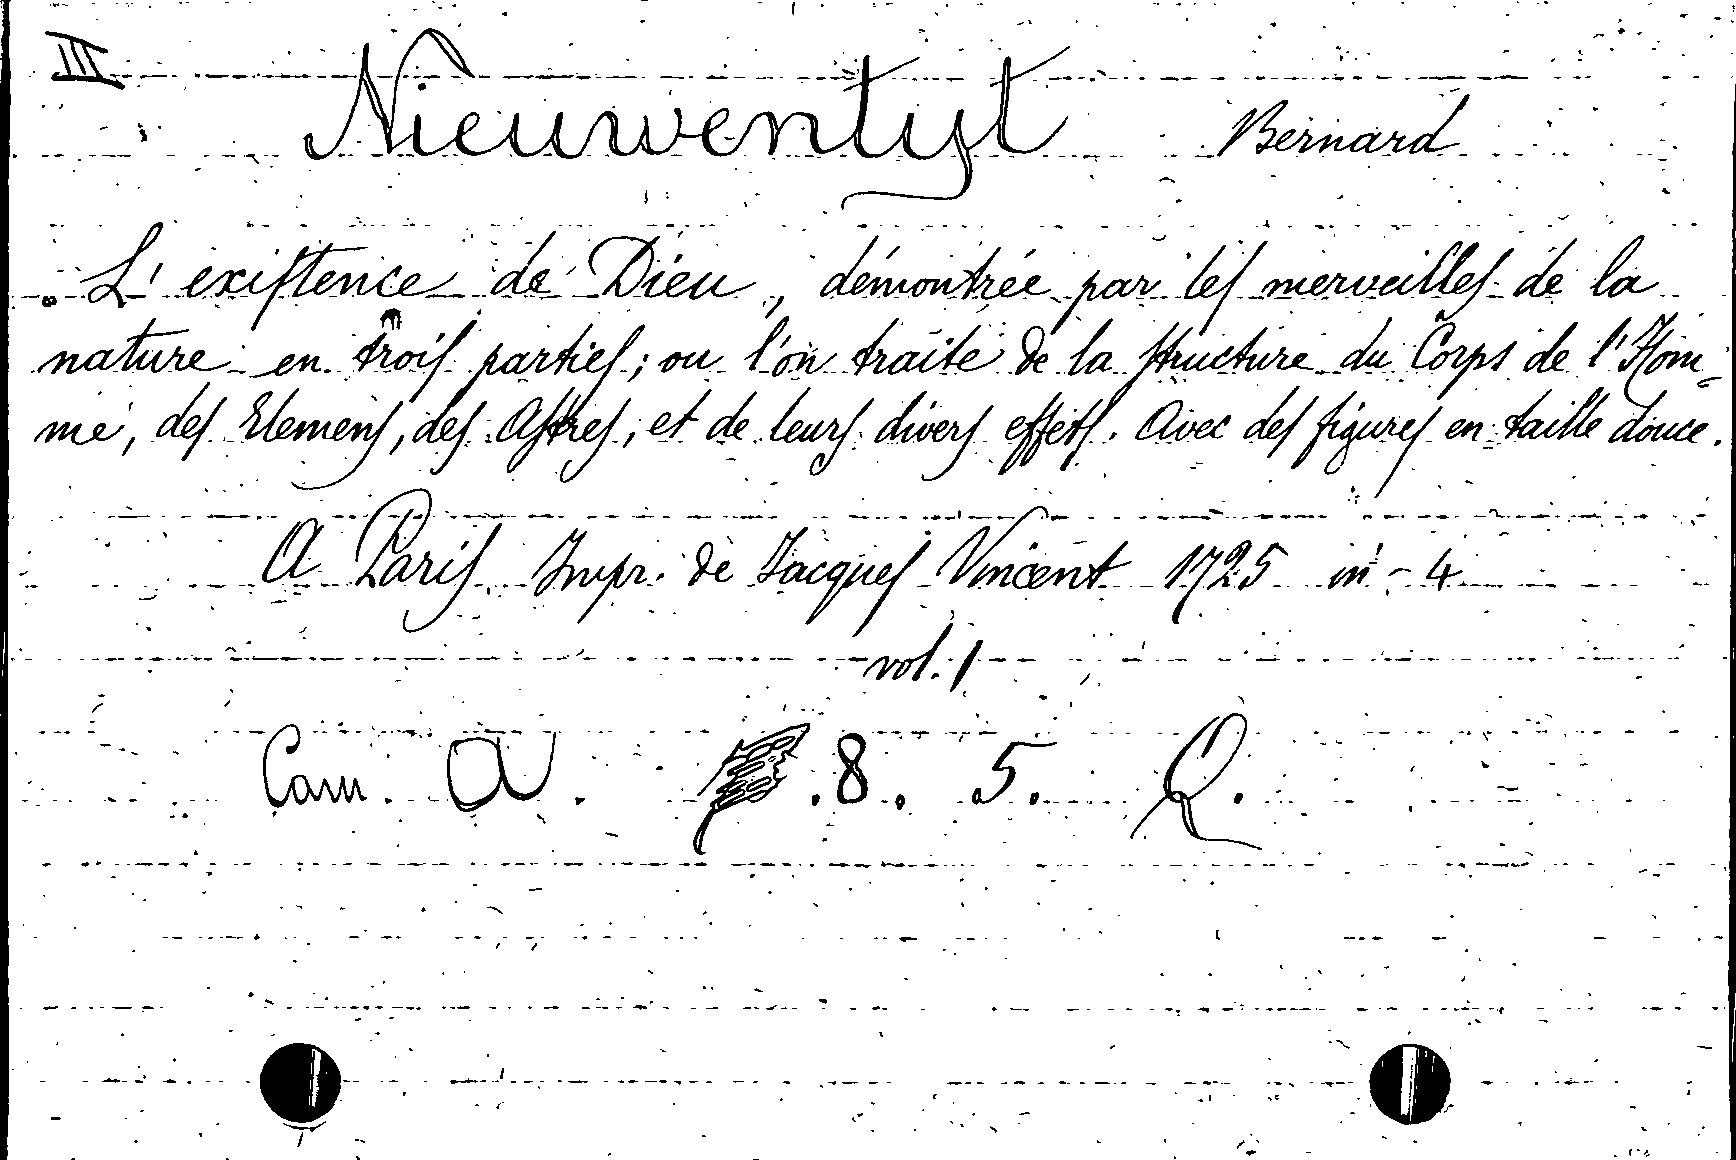 III
Nieuwentyt Bernard
L'existence de Dieu, démontrée par les merveilles de la
nature en trois parties; ou l'on traite de la structure du Corps de l'Hom-
me, des Elemens, des Astres, et de leurs divers effets. Avec des figures en taille douce.
A Paris Impr. de Jacques Vincent 1725 in-4
vol. 1
Cam. A. .8. 5. Q.